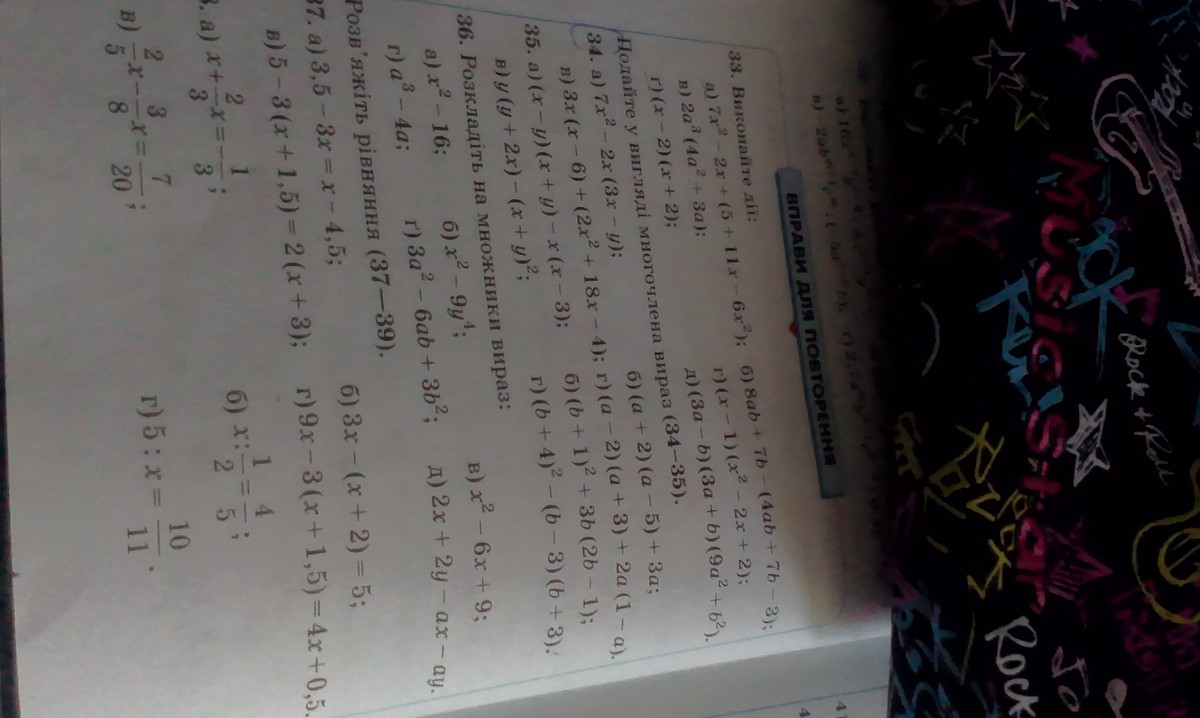 ВПРАВИ ДЛЯ ПОВТОРЕННЯ
33. Виконайте дії:
а) 7x² − 2x + (5 + 11x − 6x²); б) 8ab + 7b − (4ab + 7b − 3);
в) 2a³(4a² + 3a); г) (x − 1)(x² − 2x + 2);
ґ) (x − 2)(x + 2); д) (3a − b)(3a + b)(9a² + b²).
Подайте у вигляді многочлена вираз (34—35).
34. а) 7x² − 2x(3x − y); б) (a + 2)(a − 5) + 3a;
в) 3x(x − 6) + (2x² + 18x − 4); г) (a − 2)(a + 3) + 2a(1 − a).
35. а) (x − y)(x + y) − x(x − 3); б) (b + 1)² + 3b(2b − 1);
в) y(y + 2x) − (x + y)²; г) (b + 4)² − (b − 3)(b + 3).
36. Розкладіть на множники вираз:
а) x² − 16; б) x² − 9y⁴; в) x² − 6x + 9;
г) a³ − 4a; ґ) 3a² − 6ab + 3b²; д) 2x + 2y − ax − ay.
Розв'яжіть рівняння (37—39).
37. а) 3,5 − 3x = x − 4,5; б) 3x − (x + 2) = 5;
в) 5 − 3(x + 1,5) = 2(x + 3); г) 9x − 3(x + 1,5) = 4x + 0,5.
8. а) x + 2/3 x = 1/3; б) x : 1/2 = 4/5;
в) 2/5 x − 3/8 x = 7/20; г) 5 : x = 10/11.
Music Star
Rock
Rock + Roll
Rock